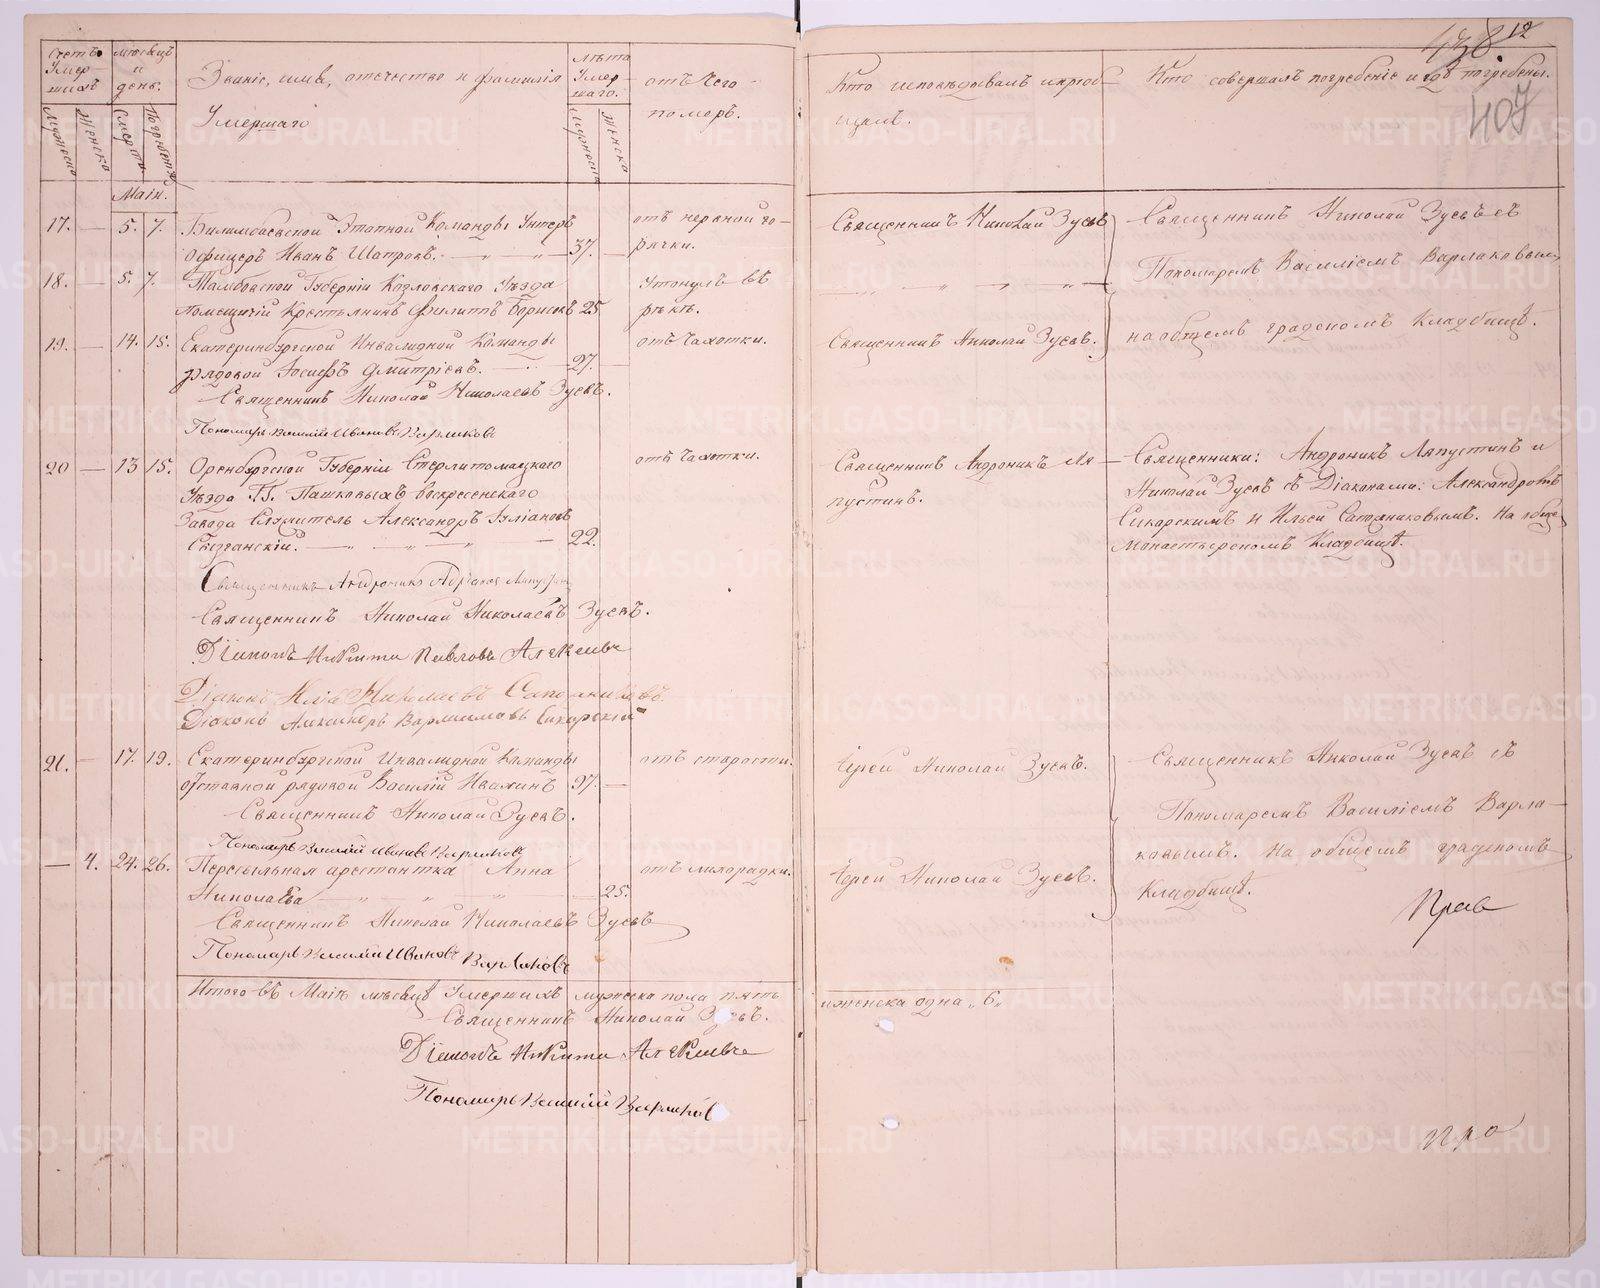 438 12
407
Счетъ Умершихъ
мѣсяцъ и день.
Званіе, имя, отечество и фамилія
Умершаго
лѣта Умершаго.
отъ Чего
померъ.
Кто исповѣдывалъ и пріоб-
щалъ.
Кто совершалъ погребеніе и гдѣ погребены.
Мужеска
Женска
Смерти
Погребенія
Мужеска
Женска
Маія.
17. — 5. 7. Билимбаевской Этапной Команды Унтеръ
офицеръ Иванъ Шатровъ. 37. —
отъ нервной го-
рячки.
Священникъ Николай Зуевъ
Священникъ Николай Зуевъ съ
Пономаремъ Василіемъ Варлаковымъ,
на общемъ градскомъ Кладбищѣ.
18. — 5. 7. Тамбовской Губерніи Козловскаго Уѣзда
помещичій Крестьянинъ Филиппъ Борисовъ 25
Утонулъ въ
рѣкѣ.
19. — 14. 15. Екатеринбургской Инвалидной Команды
рядовой Іосифъ Дмитріевъ. 27. —
отъ Чахотки.
Священникъ Николай Зуевъ.
Священникъ Николай Николаевъ Зуевъ.
Пономарь Василій Ивановъ Варлаковъ
20 — 13 15. Оренбургской Губерніи Стерлитомацкаго
Уѣзда Гг. Пашковыхъ Воскресенскаго
Завода Служитель Александръ Іуліановъ
22.
отъ Чахотки.
Священникъ Андроникъ Ля-
пустинъ.
Священники: Андроникъ Ляпустинъ и
Николай Зуевъ съ Діаконами: Александромъ
Сикарскимъ и Ильей Сапожниковымъ. На общемъ
Монастырскомъ Кладбищѣ.
Священникъ Андроникъ Адріановъ Ляпустинъ
Священникъ Николай Николаевъ Зуевъ.
Діаконъ Никита Павловъ Алексѣевъ
Діаконъ Илья Николаевъ Сапожниковъ
Діаконъ Александръ Сикарскій
21. — 17. 19. Екатеринбургской Инвалидной Команды
отставной рядовой Василій 97. —
отъ старости.
Іерей Николай Зуевъ.
Священникъ Николай Зуевъ съ
Пономаремъ Василіемъ Варла-
ковымъ. На общемъ градскомъ
Кладбищѣ.
Священникъ Николай Зуевъ.
Пономарь Василій Ивановъ Варлаковъ
— 4. 24. 26. Пересыльная арестантка Анна
Николаева 25.
отъ лихорадки.
Іерей Николай Зуевъ.
Священникъ Николай Николаевъ Зуевъ
Пономарь Василій Ивановъ Варлаковъ
Итого въ Маіѣ мѣсяцѣ Умершихъ мужеска пола пять
и женска одна „6„
Священникъ Николай Зуевъ.
Діаконъ Никита Алексѣевъ
Пономарь Василій Варлаковъ
METRIKI.GASO-URAL.RU